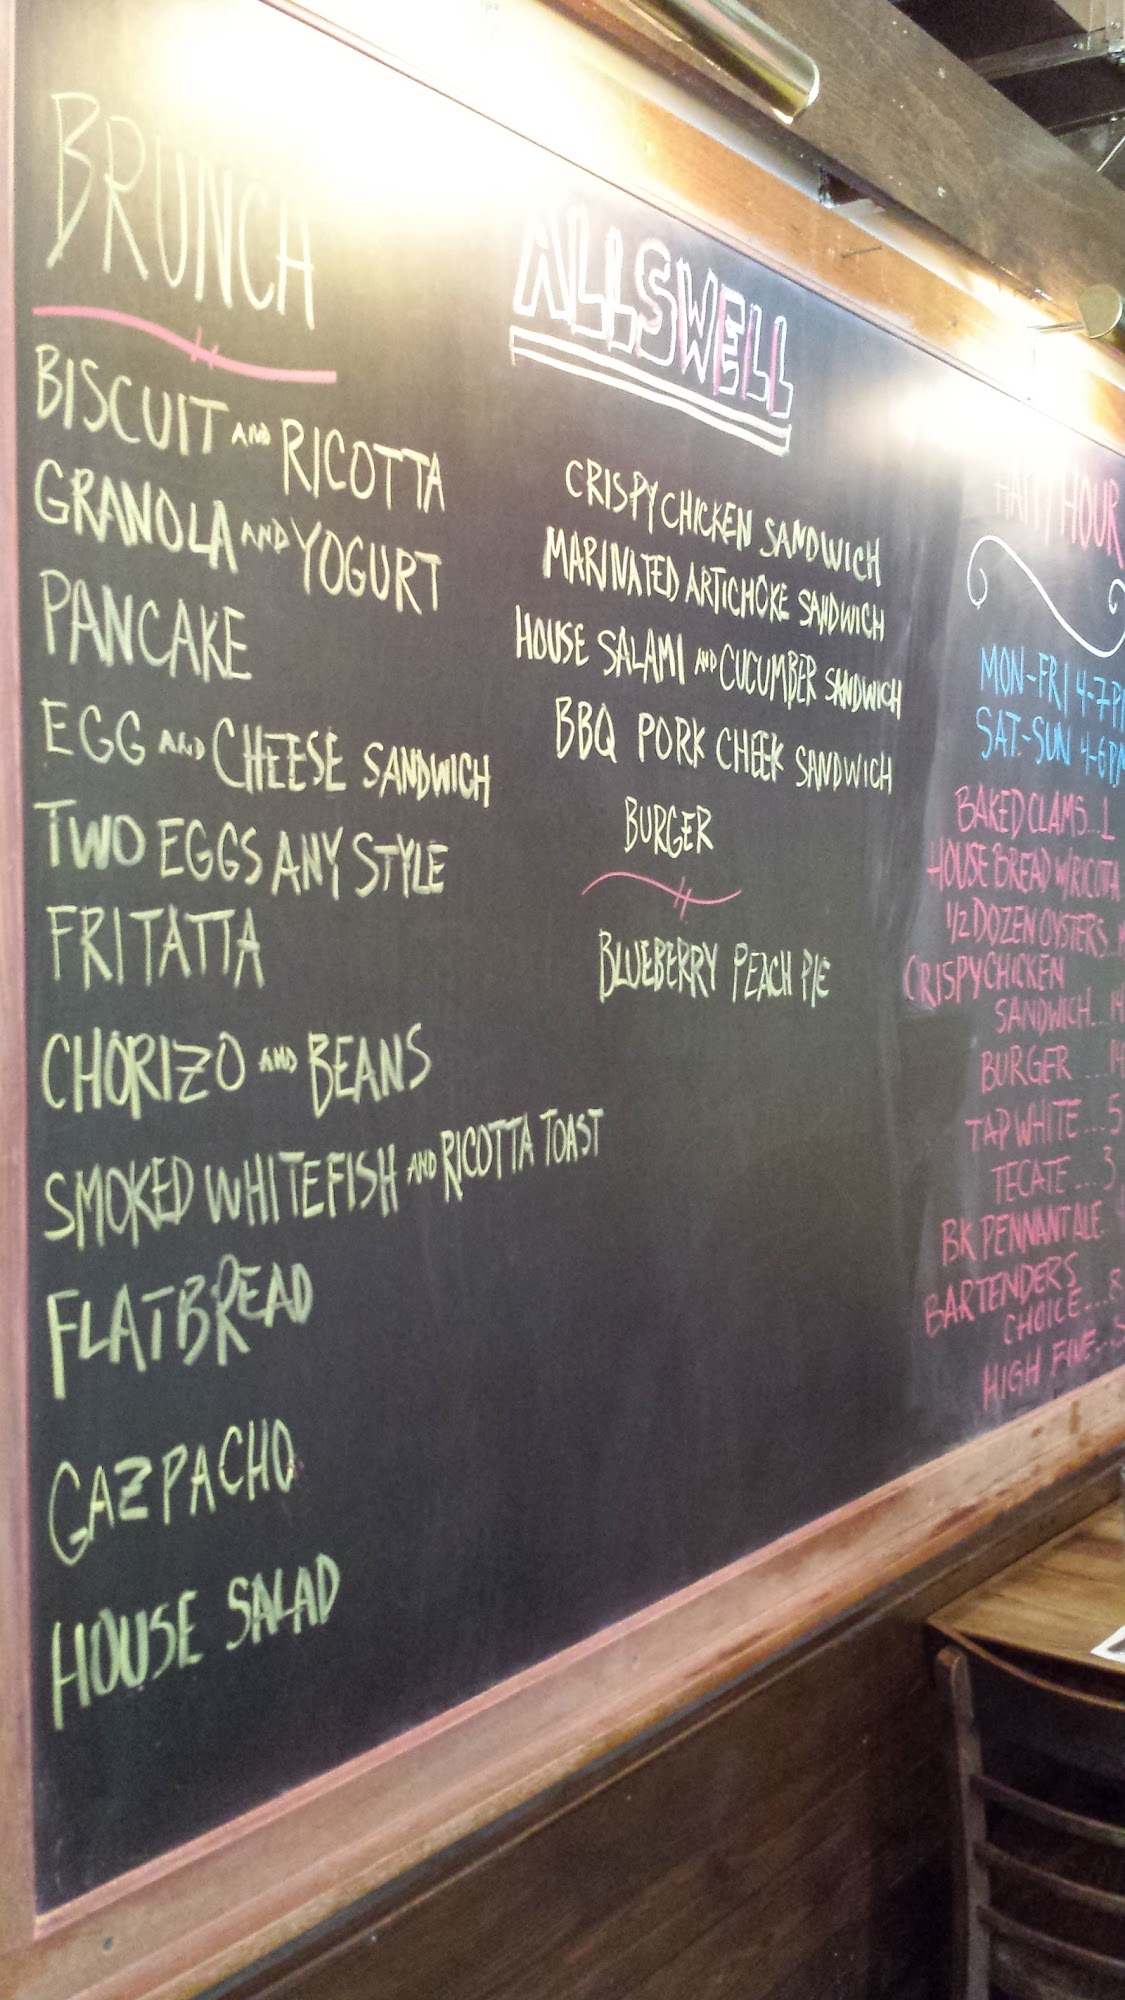 BRUNCH
BISCUIT AND RICOTTA
GRANOLA AND YOGURT
PANCAKE
EGG AND CHEESE SANDWICH
TWO EGGS ANY STYLE
FRITATTA
CHORIZO AND BEANS
SMOKED WHITEFISH AND RICOTTA TOAST
FLATBREAD
GAZPACHO
HOUSE SALAD
ALLSWELL
CRISPY CHICKEN SANDWICH
MARINATED ARTICHOKE SANDWICH
HOUSE SALAMI AND CUCUMBER SANDWICH
BBQ PORK CHEEK SANDWICH
BURGER
BLUEBERRY PEACH PIE
HAPPY HOUR
MON-FRI 4-7P
SAT.-SUN 4-6PM
BAKED CLAMS...1
HOUSE BREAD W/RICOTTA
1/2 DOZEN OYSTERS...
CRISPY CHICKEN
SANDWICH...14
BURGER ...14
TAP WHITE...5
TECATE...3
BK PENNANT ALE.
BARTENDERS
CHOICE...8
HIGH FIVE...5